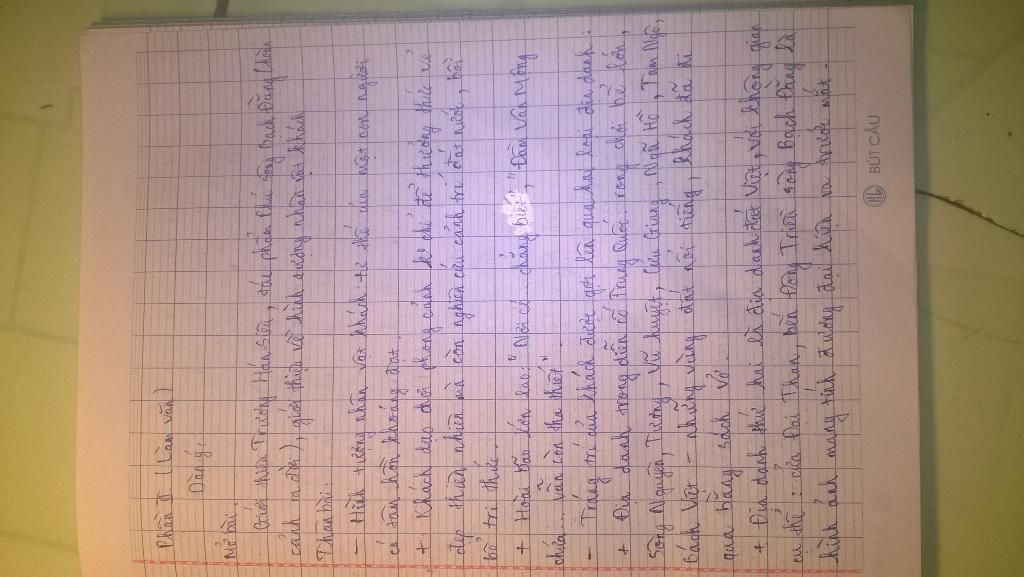 Phần II (Làm văn)
Dàn ý.
Mở bài.
Giới thiệu Trương Hán Siêu, tác phẩm Phú Sông Bạch Đằng (hoàn
cảnh ra đời), giới thiệu về hình tượng nhân vật khách
Thân bài:
- Hình tượng nhân vật khách: tư thế của một con người
có tâm hồn khoáng đạt.
+ Khách dạo chơi phong cảnh ko chỉ để thưởng thức vẻ
đẹp thiên nhiên mà còn nghiên cứu cảnh trí đất nước, bồi
bổ tri thức.
+ Hoài bão lớn lao: "Nơi có... chẳng biết", "Đầm Vân Mộng
chứa... vẫn còn tha thiết".
- Tráng trí của khách được gợi lên qua hai loại địa danh:
+ Địa danh trong điển cố Trung Quốc: rong chơi bể lớn,
Sông Nguyên, Tương, Vũ huyệt, Cửu Giang, Ngũ Hồ, Tam Ngô,
Bách Việt - những vùng đất nổi tiếng, khách đã đi
qua bằng sách vở.
+ Địa danh thứ hai là địa danh đất Việt, với không gian
cụ thể: cửa Đại Than, bến Đông Triều sông Bạch Đằng là
hình ảnh mang tính đương đại hiện ra trước mắt.
BÚT CÂU